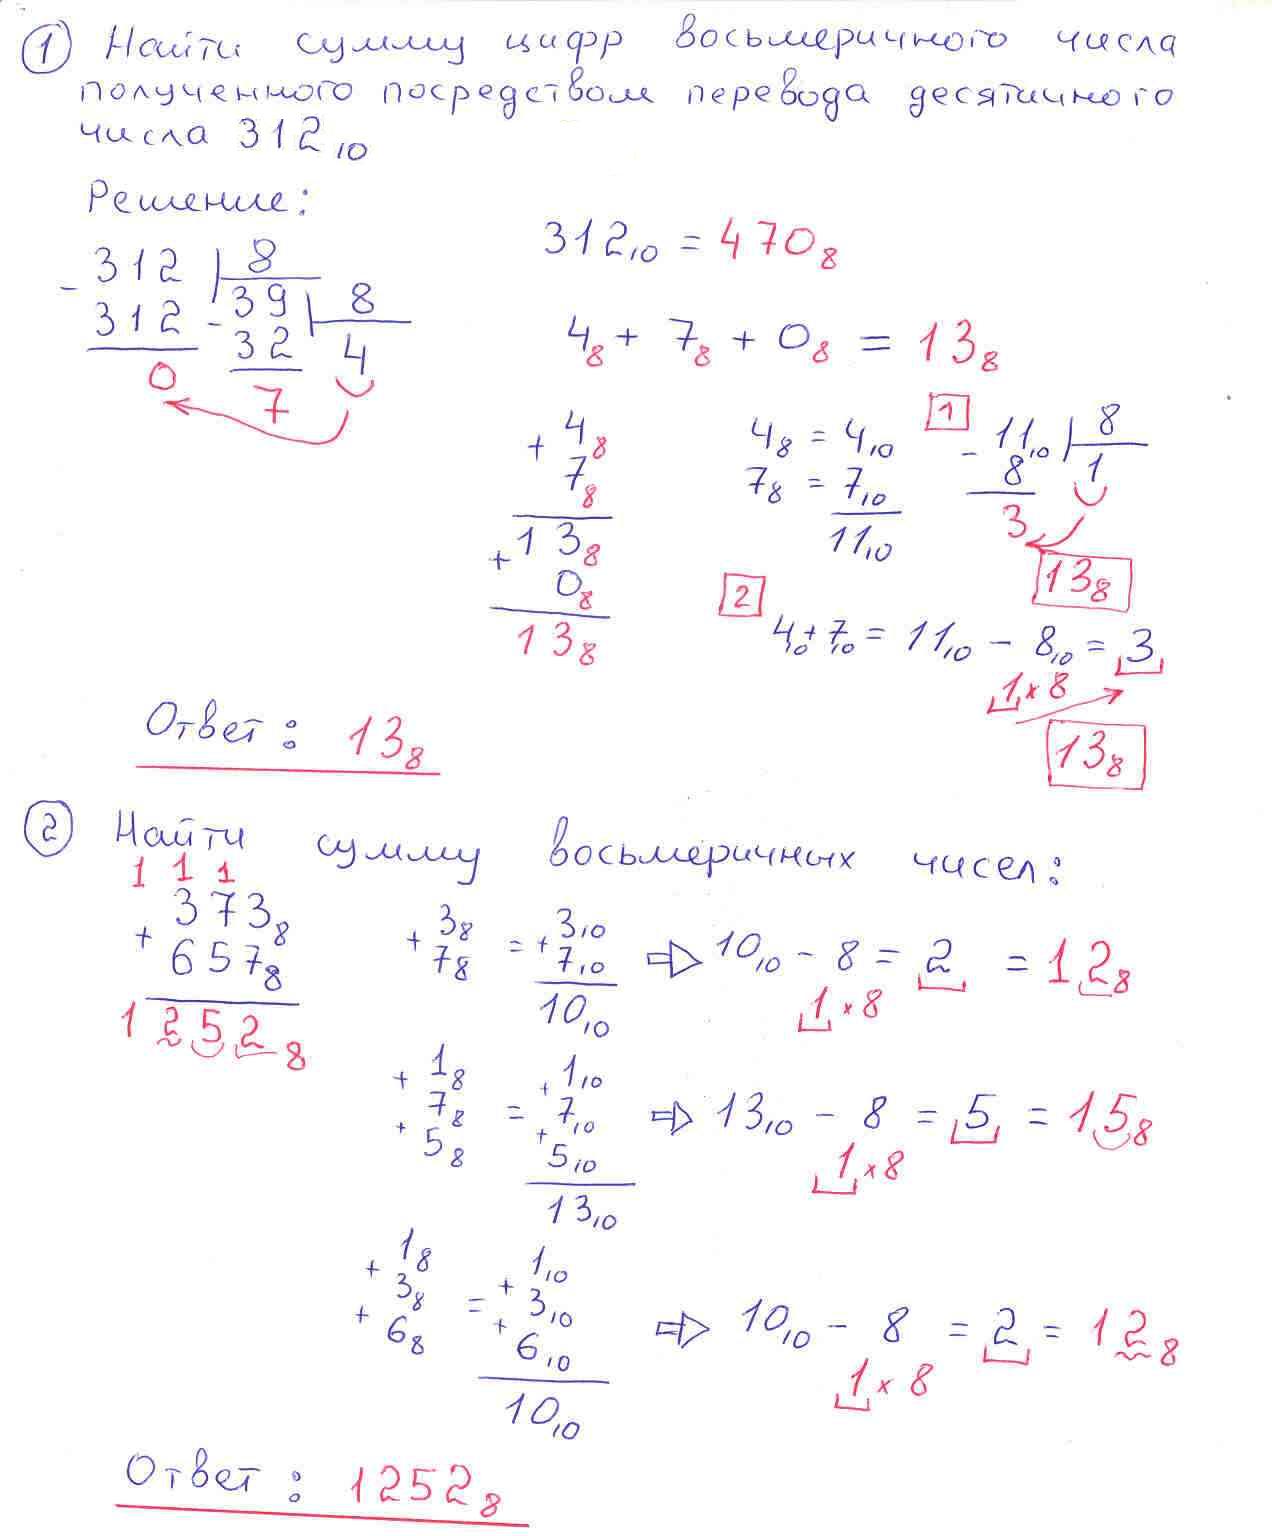 ① Найти сумму цифр восьмеричного числа
полученного посредством перевода десятичного
числа 312₁₀
Решение:
312₁₀ = 470₈
- 312 | 8
312 - 39 | 8
0 32 4
7
4₈ + 7₈ + 0₈ = 13₈
+ 4₈
7₈
+ 13₈
0₈
13₈
4₈ = 4₁₀
7₈ = 7₁₀
11₁₀
1 - 11₁₀ | 8
8 1
3
13₈
2 4₁₀ + 7₁₀ = 11₁₀ - 8₁₀ = 3
1 × 8
13₈
Ответ: 13₈
② Найти сумму восьмеричных чисел:
1 1 1
+ 373₈
657₈
1252₈
+ 3₈ = + 3₁₀ ⇒ 10₁₀ - 8 = 2 = 12₈
7₈ 7₁₀ 1 × 8
10₁₀
+ 1₈ + 1₁₀
7₈ = 7₁₀ ⇒ 13₁₀ - 8 = 5 = 15₈
+ 5₈ + 5₁₀ 1 × 8
13₁₀
+ 1₈ + 1₁₀
3₈ = 3₁₀ ⇒ 10₁₀ - 8 = 2 = 12₈
+ 6₈ + 6₁₀ 1 × 8
10₁₀
Ответ: 1252₈